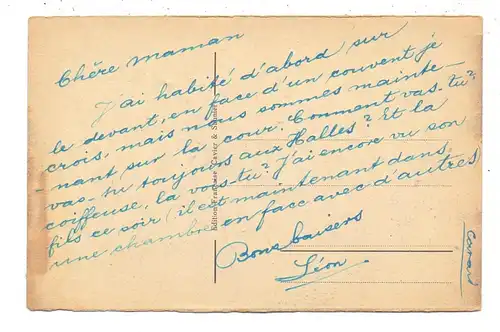 Chère maman
J'ai habité d'abord sur
le devant, en face d'un couvent je
crois, mais nous sommes mainte-
-nant sur la cour. Comment vas-tu?
vas-tu toujours aux Halles? Et la
coiffeuse, la vois-tu? J'ai encore vu son
fils ce soir (il est maintenant dans
une chambre en face avec d'autres
Bons baisers
Léon
Edition Française Cavier &